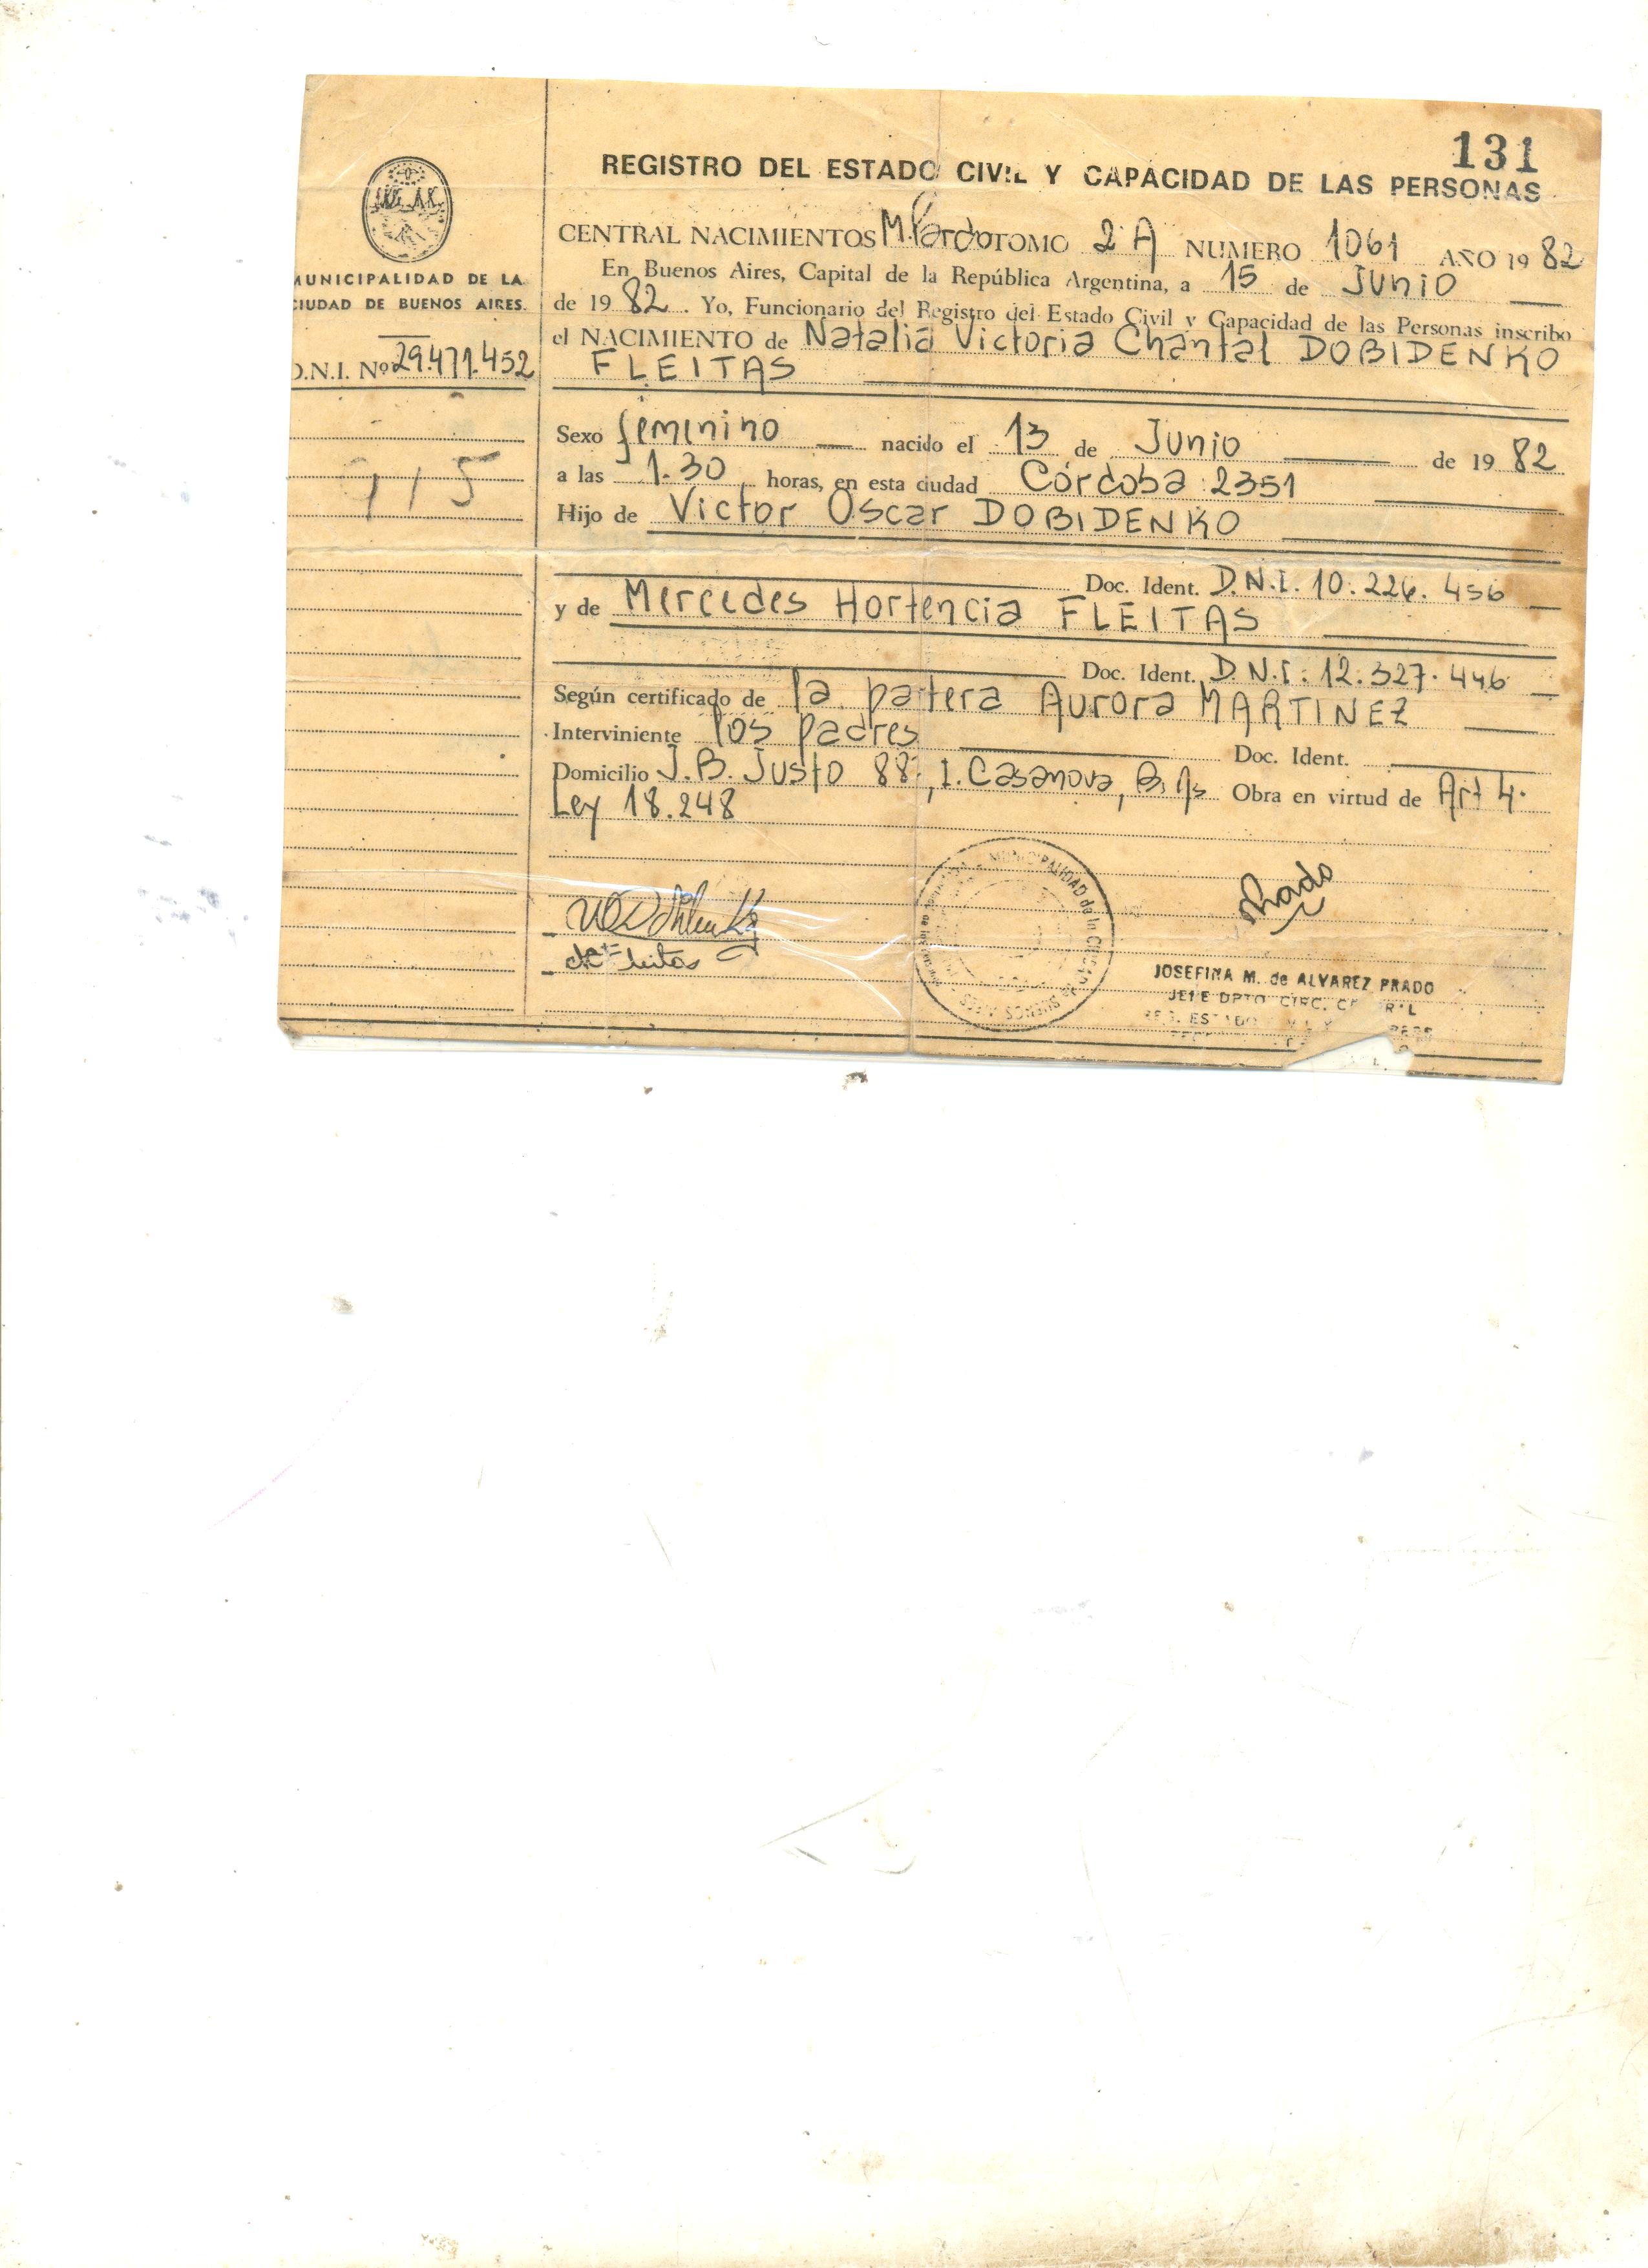 131
REGISTRO DEL ESTADO CIVIL Y CAPACIDAD DE LAS PERSONAS
MUNICIPALIDAD DE LA
CIUDAD DE BUENOS AIRES.
D.N.I. Nº 29.471.452
115
CENTRAL NACIMIENTOS M. Pardo TOMO 2 A NUMERO 1061 AÑO 1982
En Buenos Aires, Capital de la República Argentina, a 15 de Junio
de 1982. Yo, Funcionario del Registro del Estado Civil y Capacidad de las Personas inscribo
el NACIMIENTO de Natalia Victoria Chantal DOBIDENKO
FLEITAS
Sexo femenino nacido el 13 de Junio de 1982
a las 1.30 horas, en esta ciudad Córdoba 2351
Hijo de Victor Oscar DOBIDENKO
Doc. Ident. D.N.I. 10.226.456
y de Mercedes Hortencia FLEITAS
Doc. Ident. D.N.I. 12.327.446
Según certificado de la partera Aurora MARTINEZ
Interviniente los padres Doc. Ident.
Domicilio J.B. Justo 88, I. Casanova, Bs As Obra en virtud de Art 4.
Ley 18.248
MUNICIPALIDAD de la Ciudad de BUENOS AIRES
JOSEFINA M. de ALVAREZ PRADO
JEFE DPTO. CIRC.